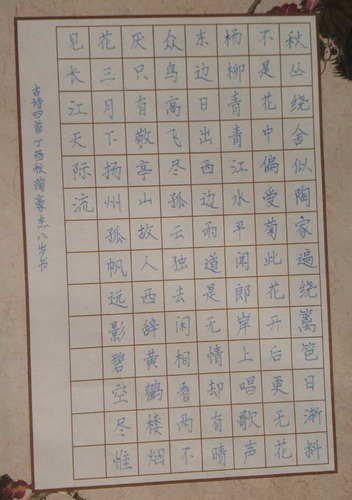 秋丛绕舍似陶家遍绕篱笆日渐斜
不是花中偏爱菊此花开后更无花
杨柳青青江水平闻郎岸上唱歌声
东边日出西边雨道是无情却有晴
众鸟高飞尽孤云独去闲相看两不
厌只有敬亭山故人西辞黄鹤楼烟
花三月下扬州孤帆远影碧空尽惟
见长江天际流
古诗四首丁酉秋陶豪杰八岁书